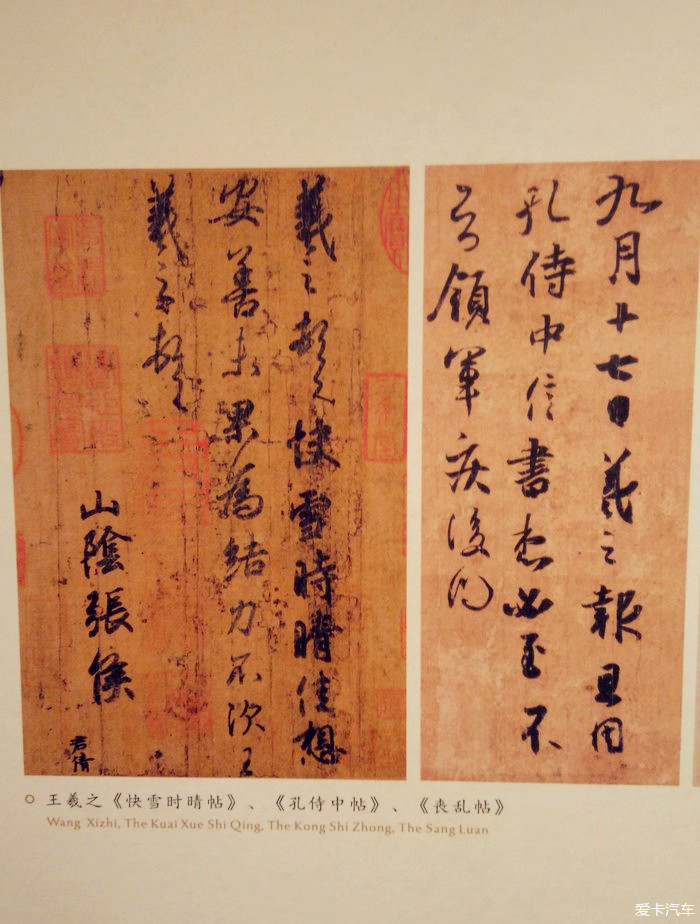 羲之頓首快雪時晴佳想
安善未果為結力不次王
羲之頓首
山陰張侯
君倩
九月十七日羲之報且因
孔侍中信書想必至不
知領軍疾後問
王羲之《快雪时晴帖》、《孔侍中帖》、《丧乱帖》
Wang Xizhi, The Kuai Xue Shi Qing, The Kong Shi Zhong, The Sang Luan
爱卡汽车